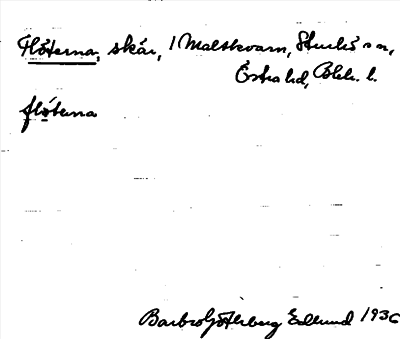 Flöterna, skär, 1 Malskvarn, Sturkö sn,
Östra hd, Blek. l.
flöterna
Barbro Götherberg Edlund 1936